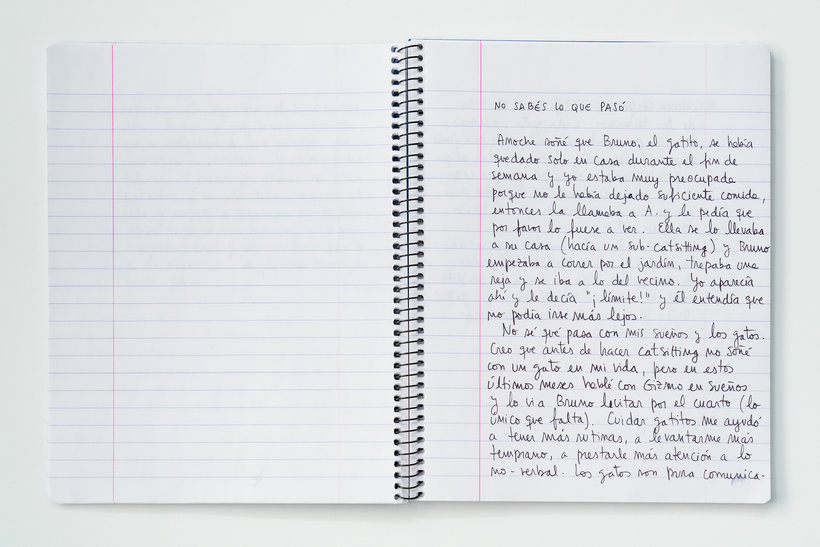 NO SABÉS LO QUE PASÓ
Anoche soñé que Bruno, el gatito, se había
quedado solo en casa durante el fin de
semana y yo estaba muy preocupada
porque no le había dejado suficiente comida,
entonces la llamaba a A. y le pedía que
por favor lo fuese a ver. Ella se lo llevaba
a su casa (hacía un sub-catsitting) y Bruno
empezaba a correr por el jardín, trepaba una
reja y se iba a lo del vecino. Yo aparecía
ahí y le decía "¡límite!" y él entendía que
no podía irse más lejos.
No sé qué pasa con mis sueños y los gatos.
Creo que antes de hacer catsitting no soñé
con un gato en mi vida, pero en estos
últimos meses hablé con Gizmo en sueños
y lo vi a Bruno levitar por el cuarto (lo
único que falta). Cuidar gatitos me ayudó
a tener más rutinas, a levantarme más
temprano, a prestarle más atención a lo
no-verbal. Los gatos son pura comunica-